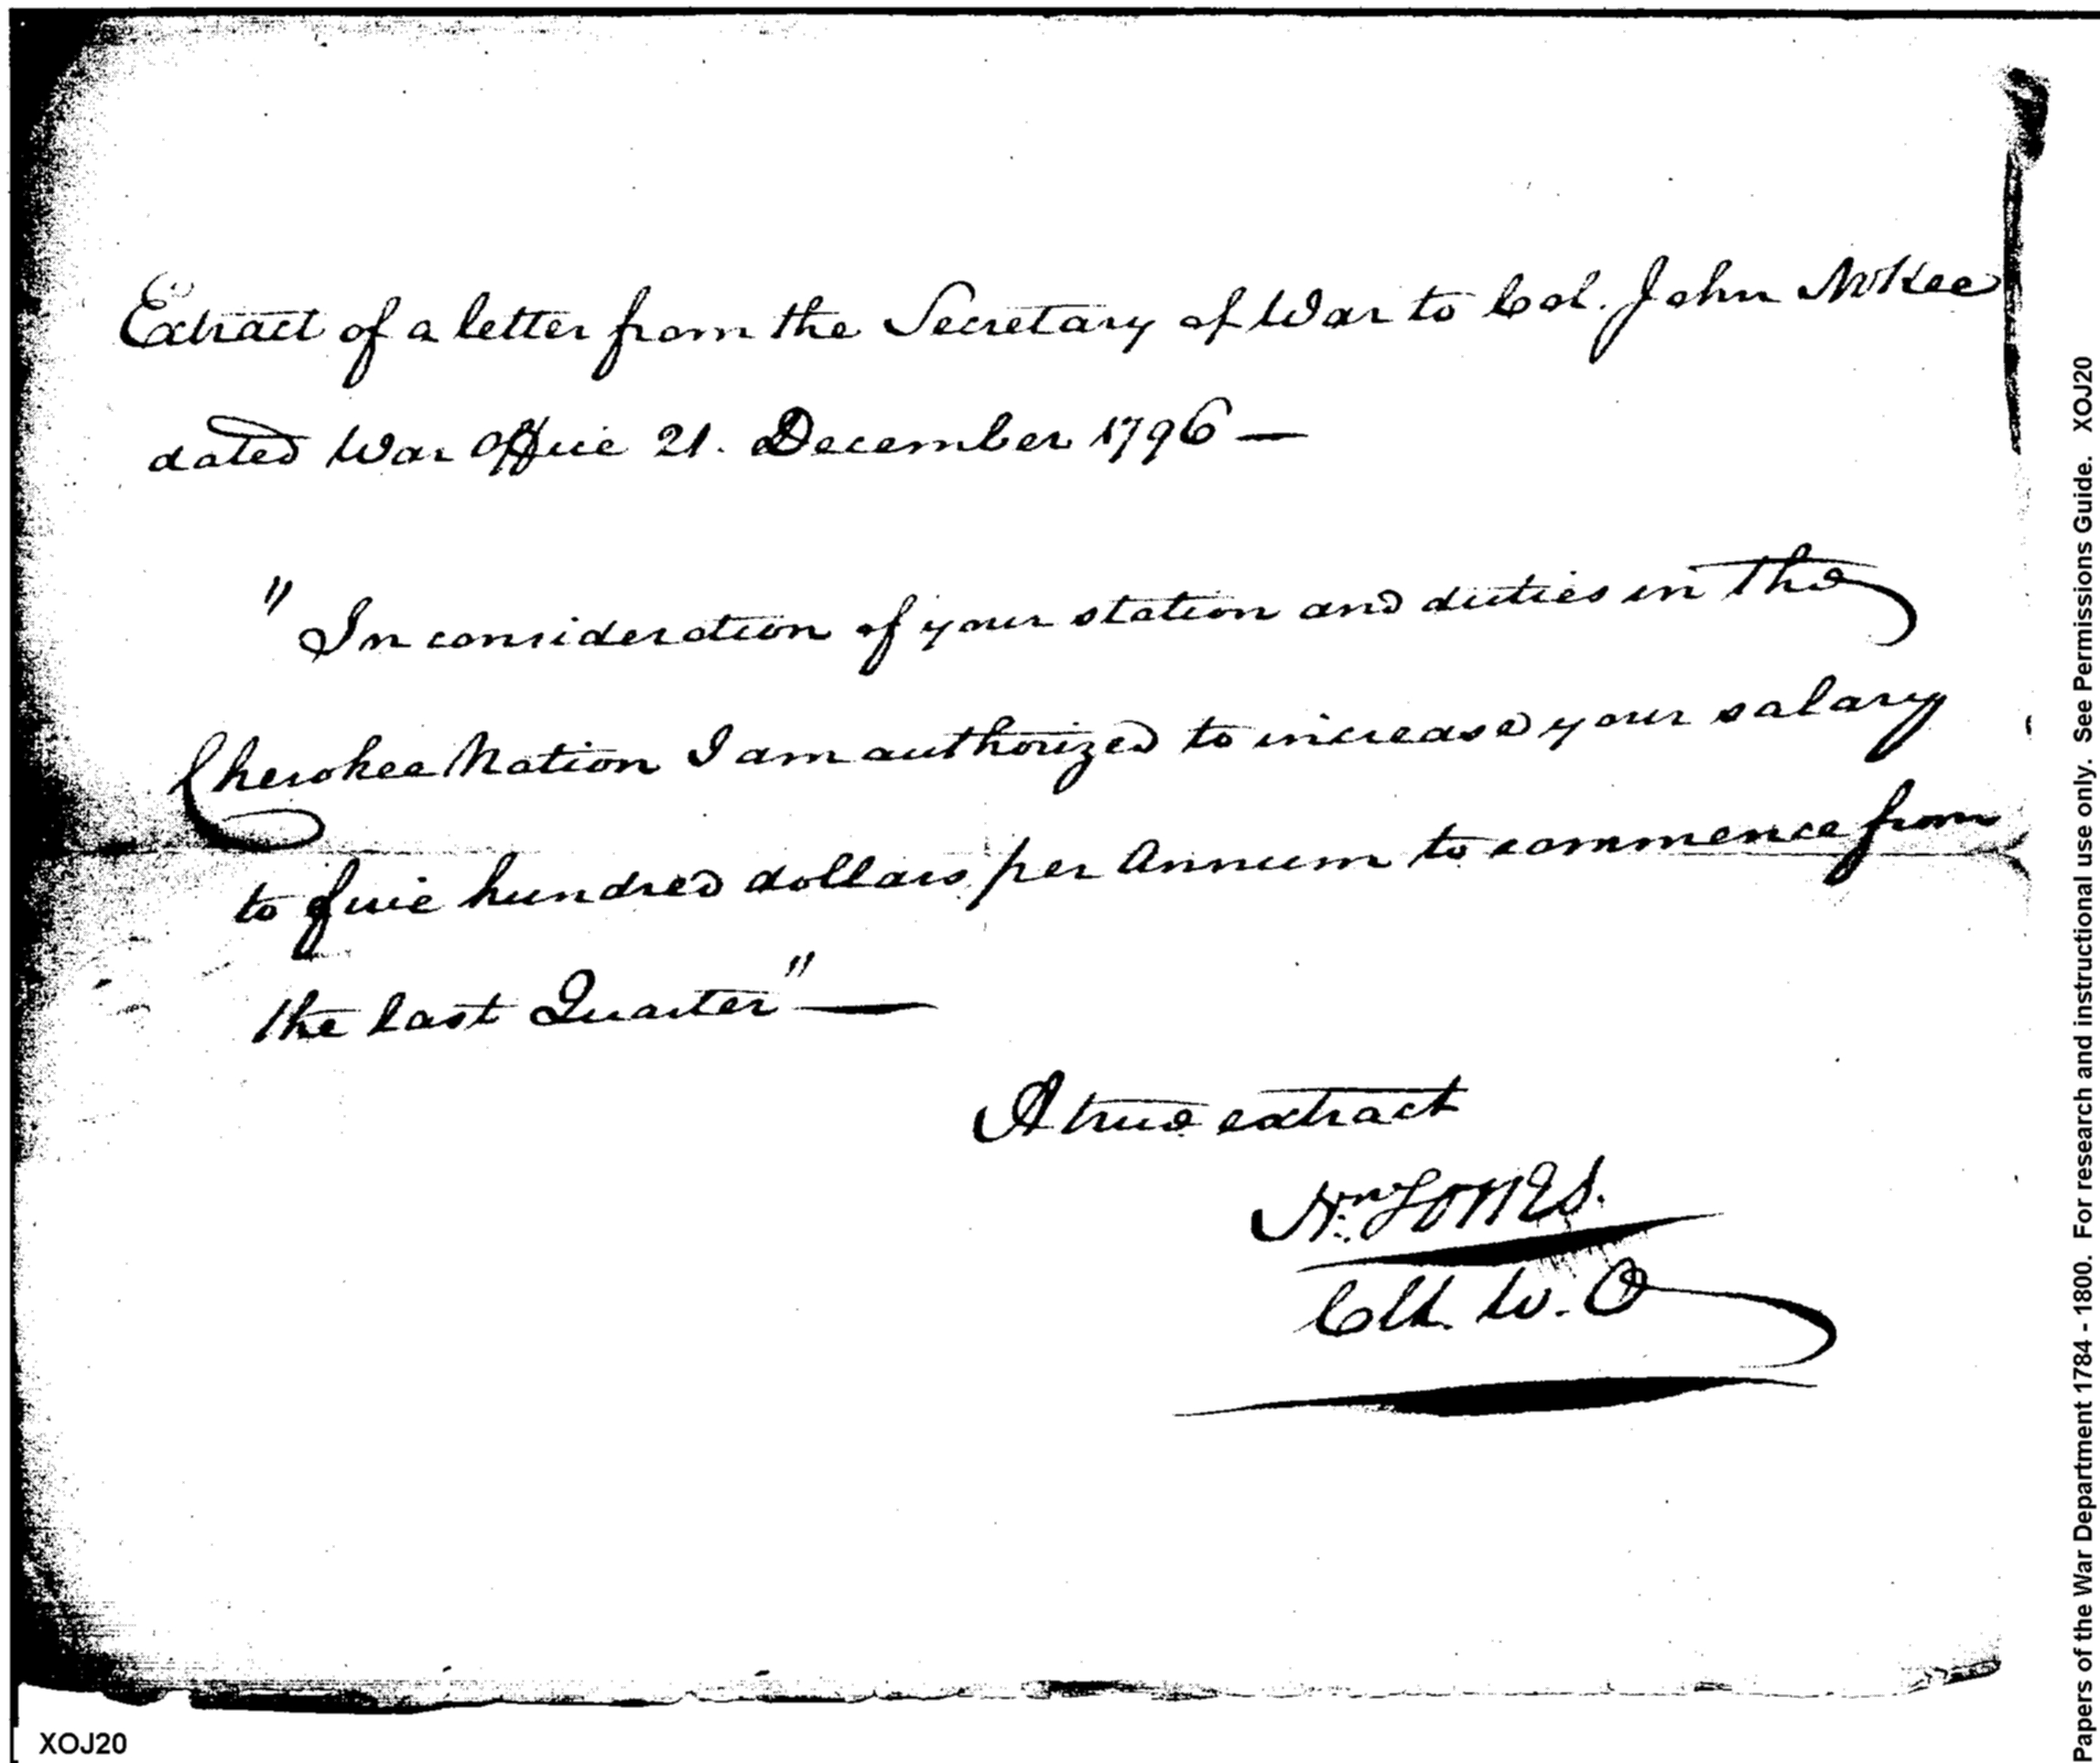 Extract of a letter from the Secretary of War to Col. John McKee
dated War Office 21. December 1796 —
"In consideration of your station and duties in the
Cherokee Nation I am authorized to increase your salary
to five hundred dollars per Annum to commence from
the last Quarter" —
A true extract
Nn Jones.
Clk. W. O
XOJ20
Papers of the War Department 1784 - 1800. For research and instructional use only. See Permissions Guide. XOJ20